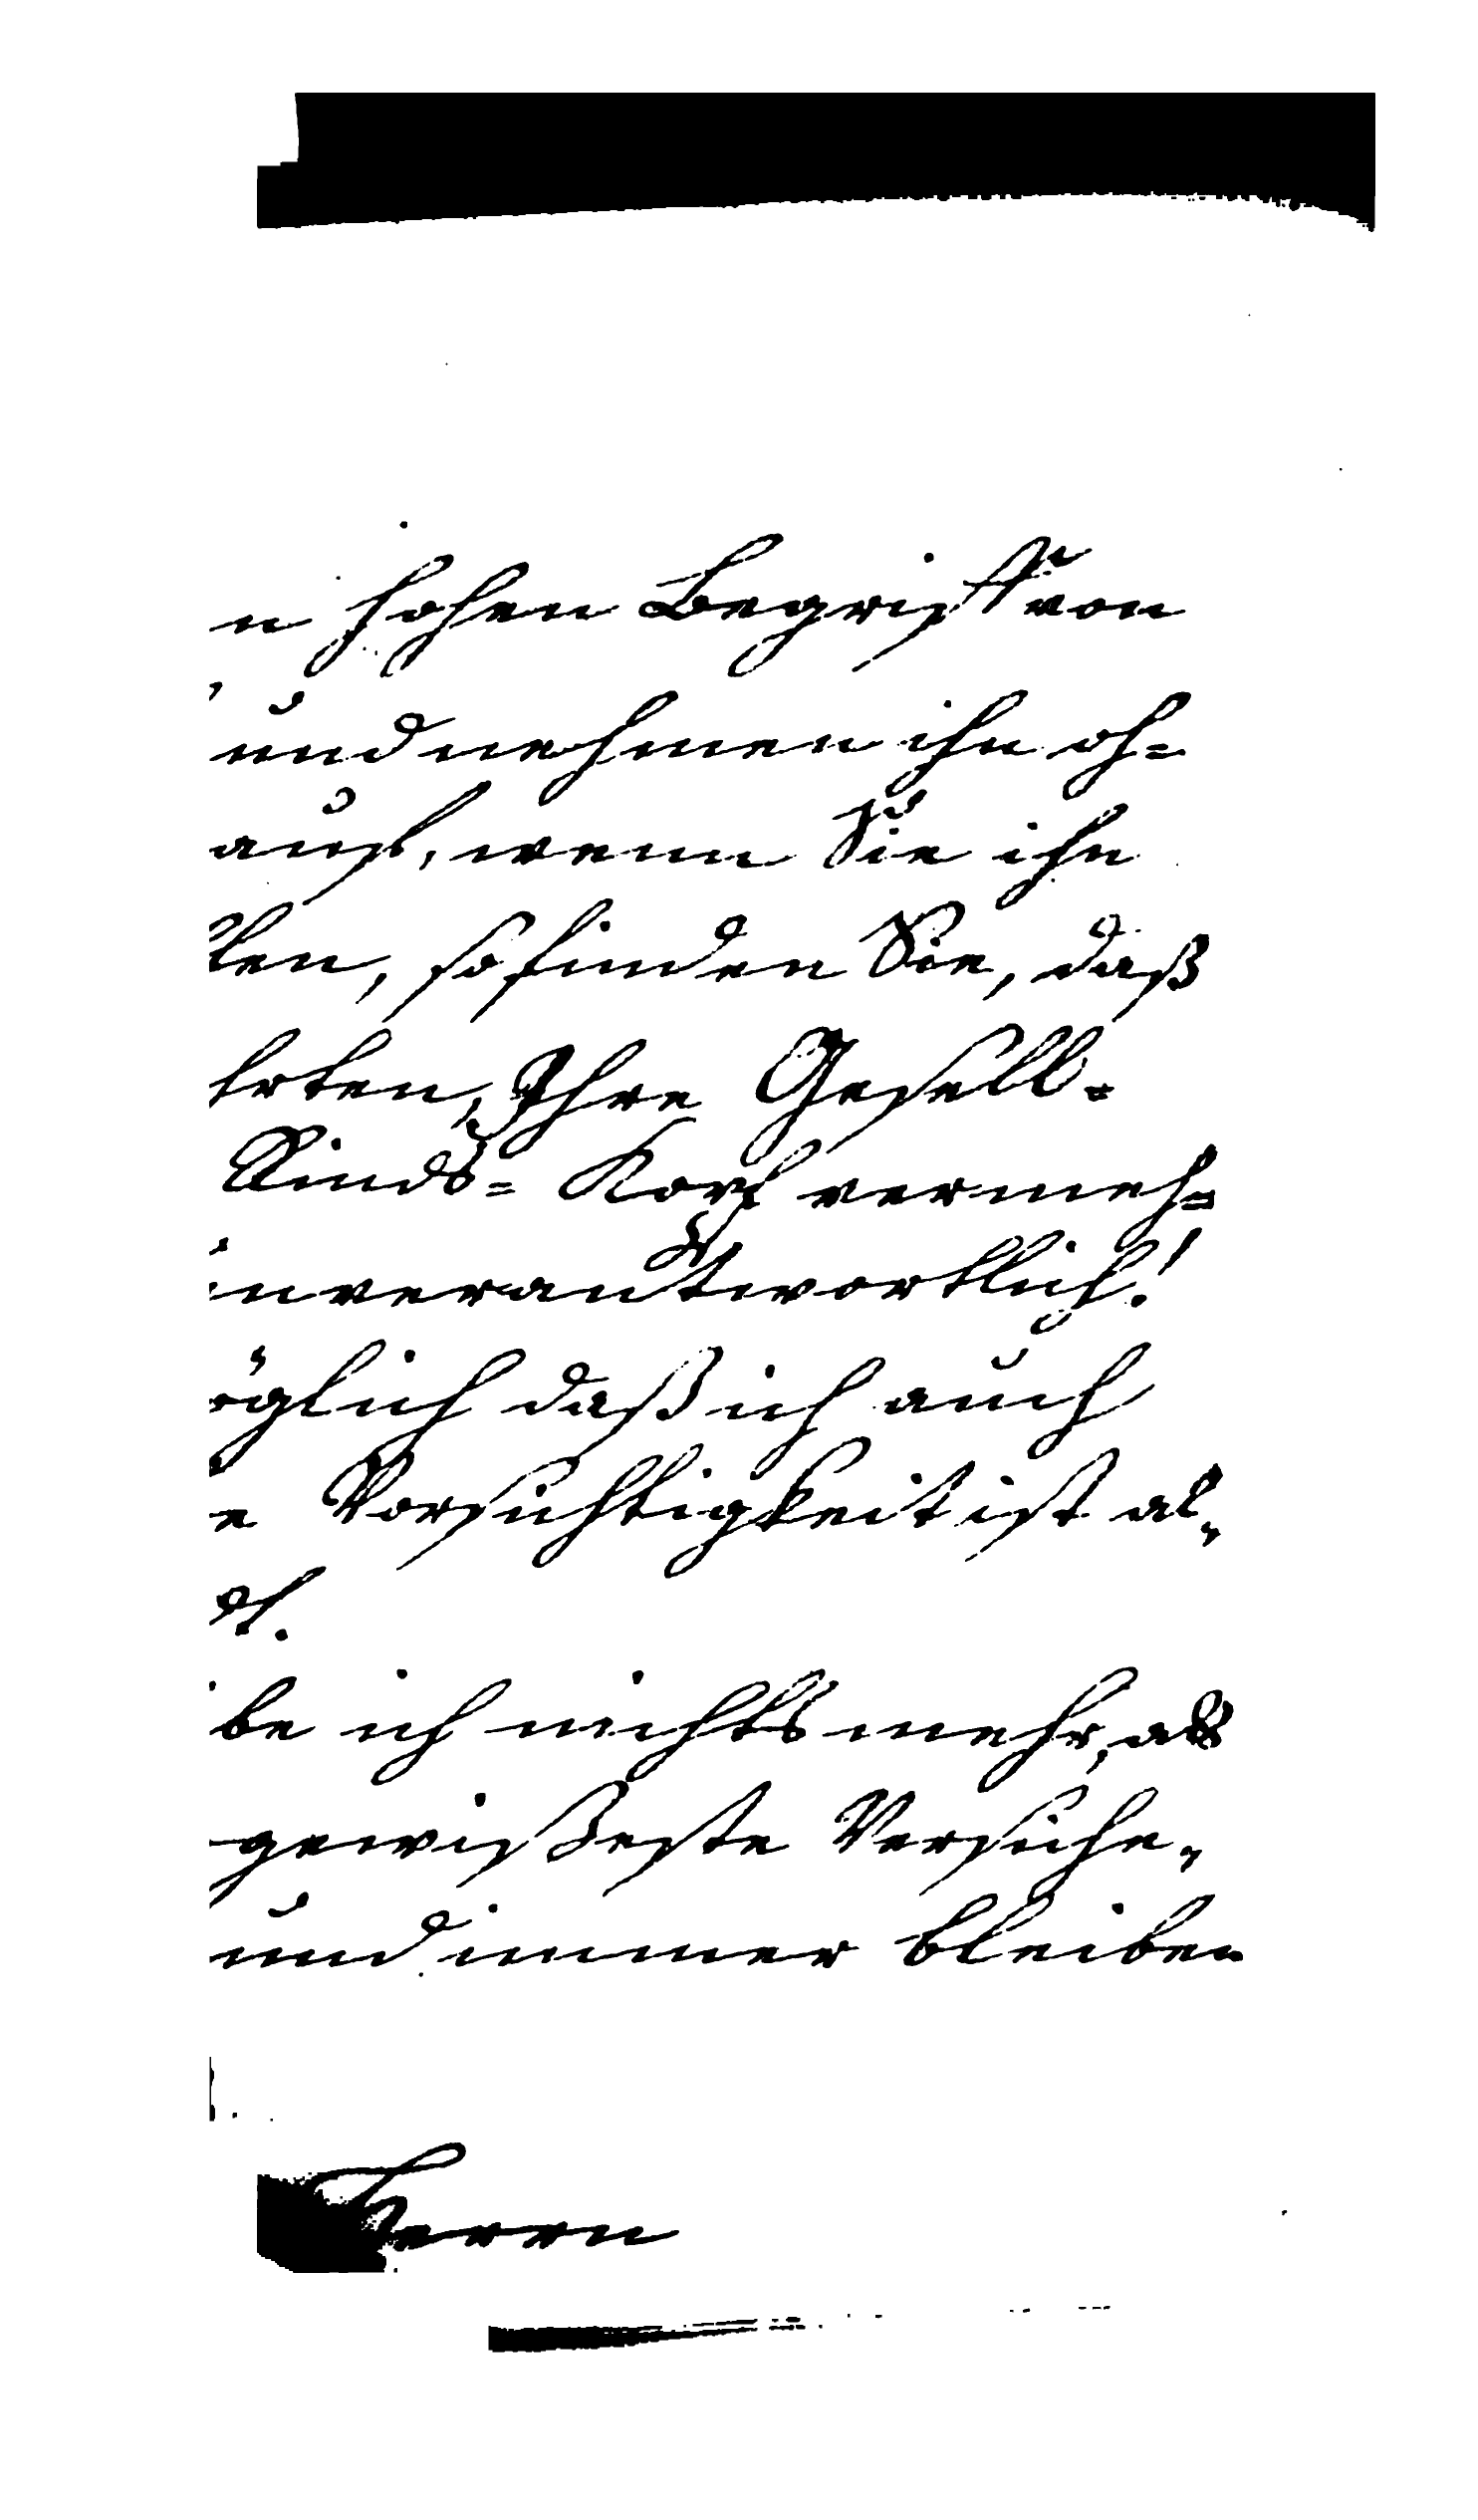 n hohen Begriff von
und nehmen ihn eh=
auch, wenn Sie ihn
len, so finden Sie, daß
boten, Ihre Gesell.
Kinds= Kopf vernach=
unverantwortlich!
öglich daß ich auch
Vorsichtigkeit ist al,
be ich nichts mehr, als
gewisseste Versiche,
und immer bleiben